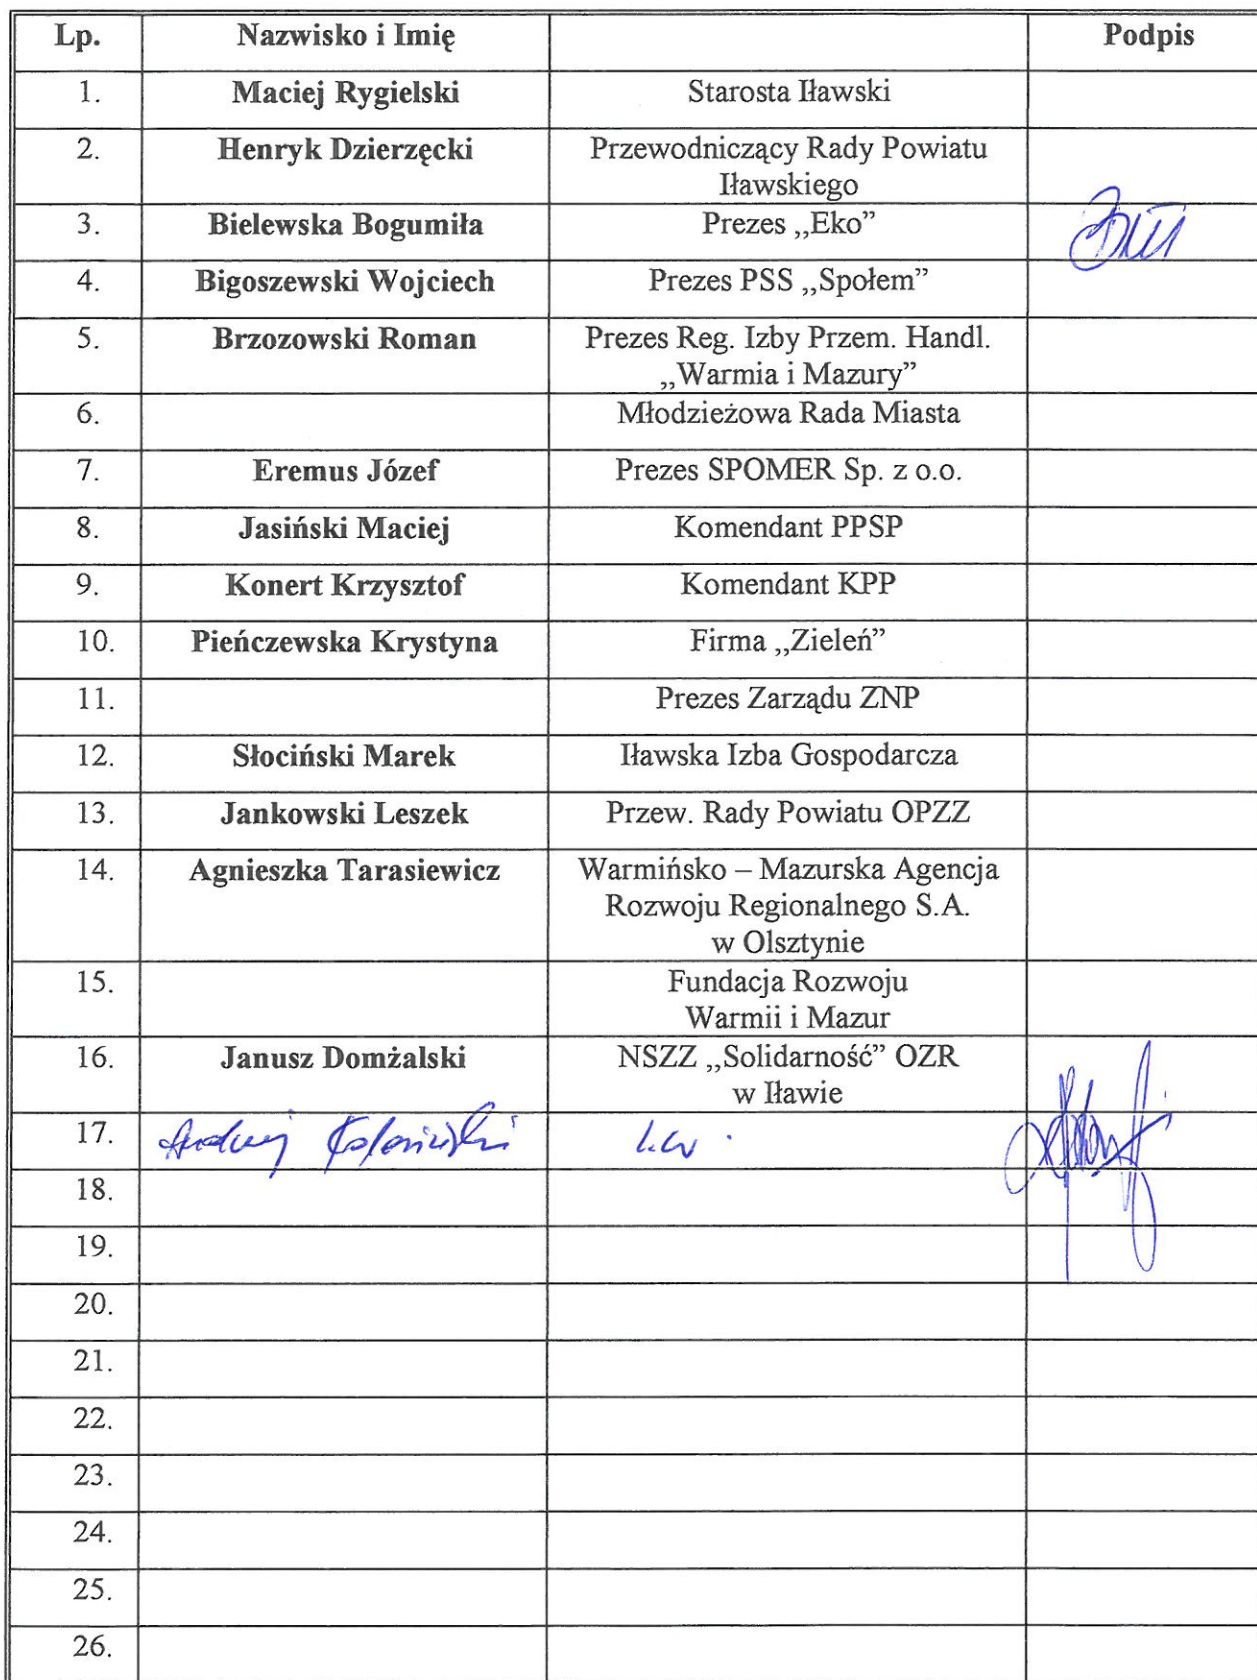 Lp. Nazwisko i Imię Podpis
1. Maciej Rygielski Starosta Iławski
2. Henryk Dzierzęcki Przewodniczący Rady Powiatu
Iławskiego
3. Bielewska Bogumiła Prezes ,,Eko”
4. Bigoszewski Wojciech Prezes PSS ,,Społem”
5. Brzozowski Roman Prezes Reg. Izby Przem. Handl.
,,Warmia i Mazury”
6. Młodzieżowa Rada Miasta
7. Eremus Józef Prezes SPOMER Sp. z o.o.
8. Jasiński Maciej Komendant PPSP
9. Konert Krzysztof Komendant KPP
10. Pieńczewska Krystyna Firma ,,Zieleń”
11. Prezes Zarządu ZNP
12. Słociński Marek Iławska Izba Gospodarcza
13. Jankowski Leszek Przew. Rady Powiatu OPZZ
14. Agnieszka Tarasiewicz Warmińsko – Mazurska Agencja
Rozwoju Regionalnego S.A.
w Olsztynie
15. Fundacja Rozwoju
Warmii i Mazur
16. Janusz Domżalski NSZZ ,,Solidarność” OZR
w Iławie
17. Andrzej
18.
19.
20.
21.
22.
23.
24.
25.
26.